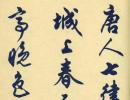 唐人七律
城上春云
高晚色